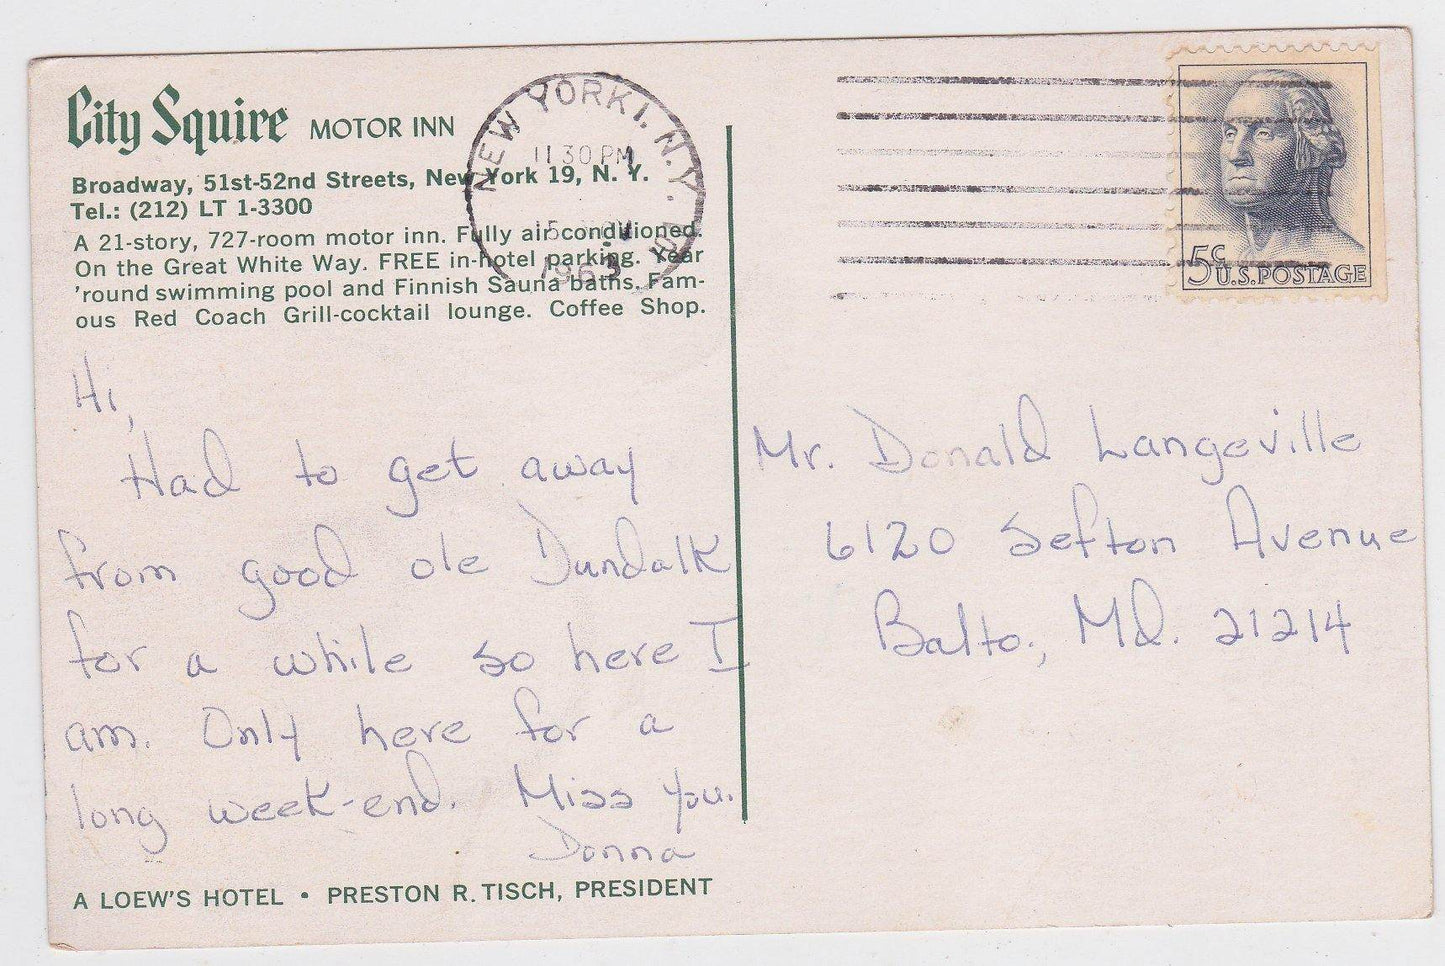 City Squire MOTOR INN
Broadway, 51st-52nd Streets, New York 19, N. Y.
Tel.: (212) LT 1-3300
A 21-story, 727-room motor inn. Fully air conditioned.
On the Great White Way. FREE in-hotel parking. Year
'round swimming pool and Finnish Sauna baths. Fam-
ous Red Coach Grill-cocktail lounge. Coffee Shop.
NEW YORK 1, N.Y.
11 30 PM
15 NOV
1963
5c
U.S. POSTAGE
Hi,
Had to get away
from good ole Dundalk
for a while so here I
am. Only here for a
long week-end. Miss you.
Donna
A LOEW'S HOTEL • PRESTON R. TISCH, PRESIDENT
Mr. Donald Langeville
6120 Sefton Avenue
Balto., Md. 21214